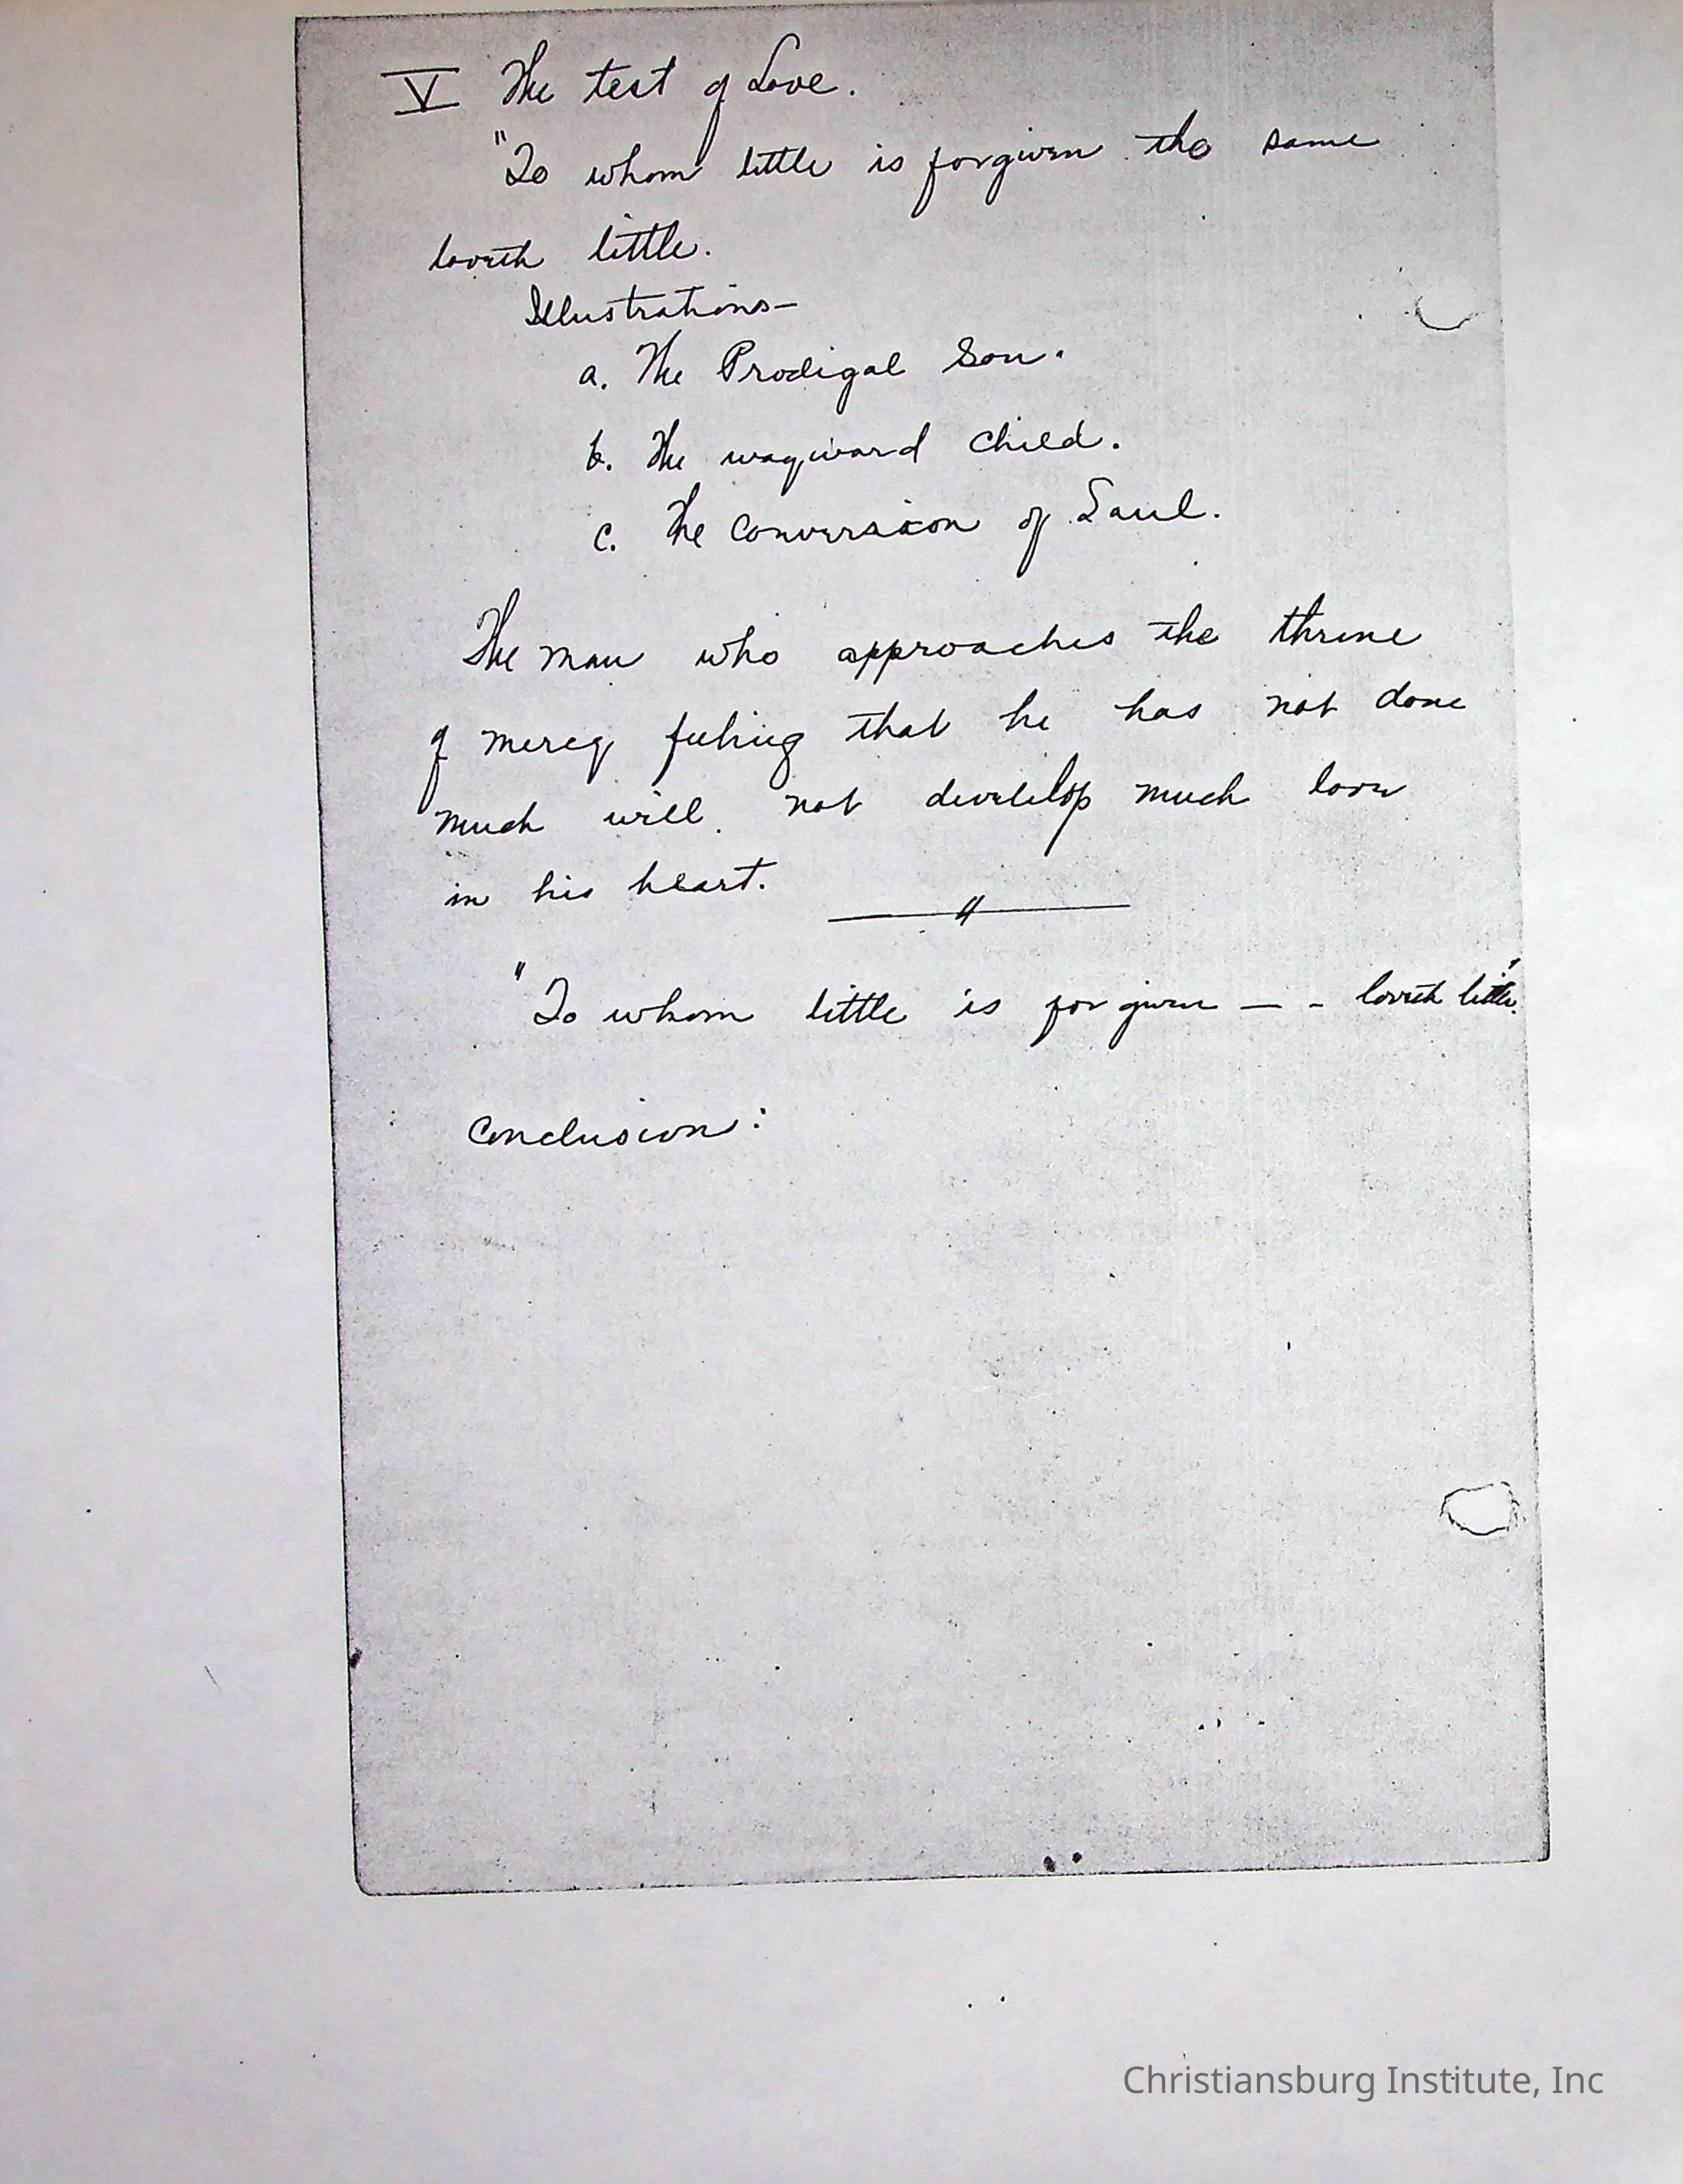 V The test of Love.
"To whom little is forgiven the same
loveth little.
Illustrations—
a. The Prodigal Son.
b. The wayward child.
c. The Conversion of Saul.
The man who approaches the throne
of mercy feeling that he has not done
much will not develop much love
in his heart.
"To whom little is forgiven — - loveth little."
Conclusion:
Christiansburg Institute, Inc